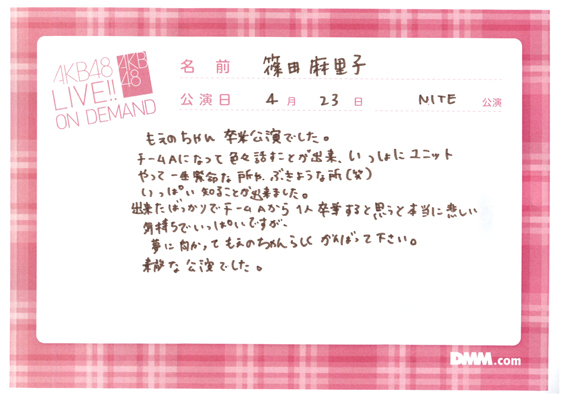 AKB48
LIVE!!
ON DEMAND
AKB
48
名前 篠田麻里子
公演日 4月23日 NITE 公演
もえのちゃん 卒業公演でした。
チームAになって色々話すことが出来、いっしょにユニット
やって一生懸命な所や、ぶきような所(笑)
いっぱい知ることが出来ました。
出来たばっかりでチームAから1人卒業すると思うと本当に悲しい
気持ちでいっぱいですが、
夢に向かってもえのちゃんらしくがんばって下さい。
素敵な公演でした。
DMM.com